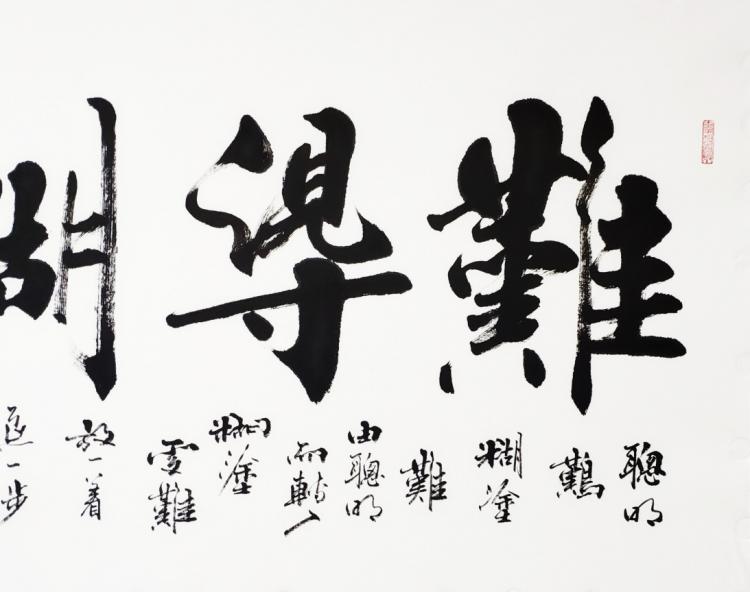 難得糊
聰明
難
糊塗
難
由聰明
而轉入
糊塗
更難
放一着
退一步